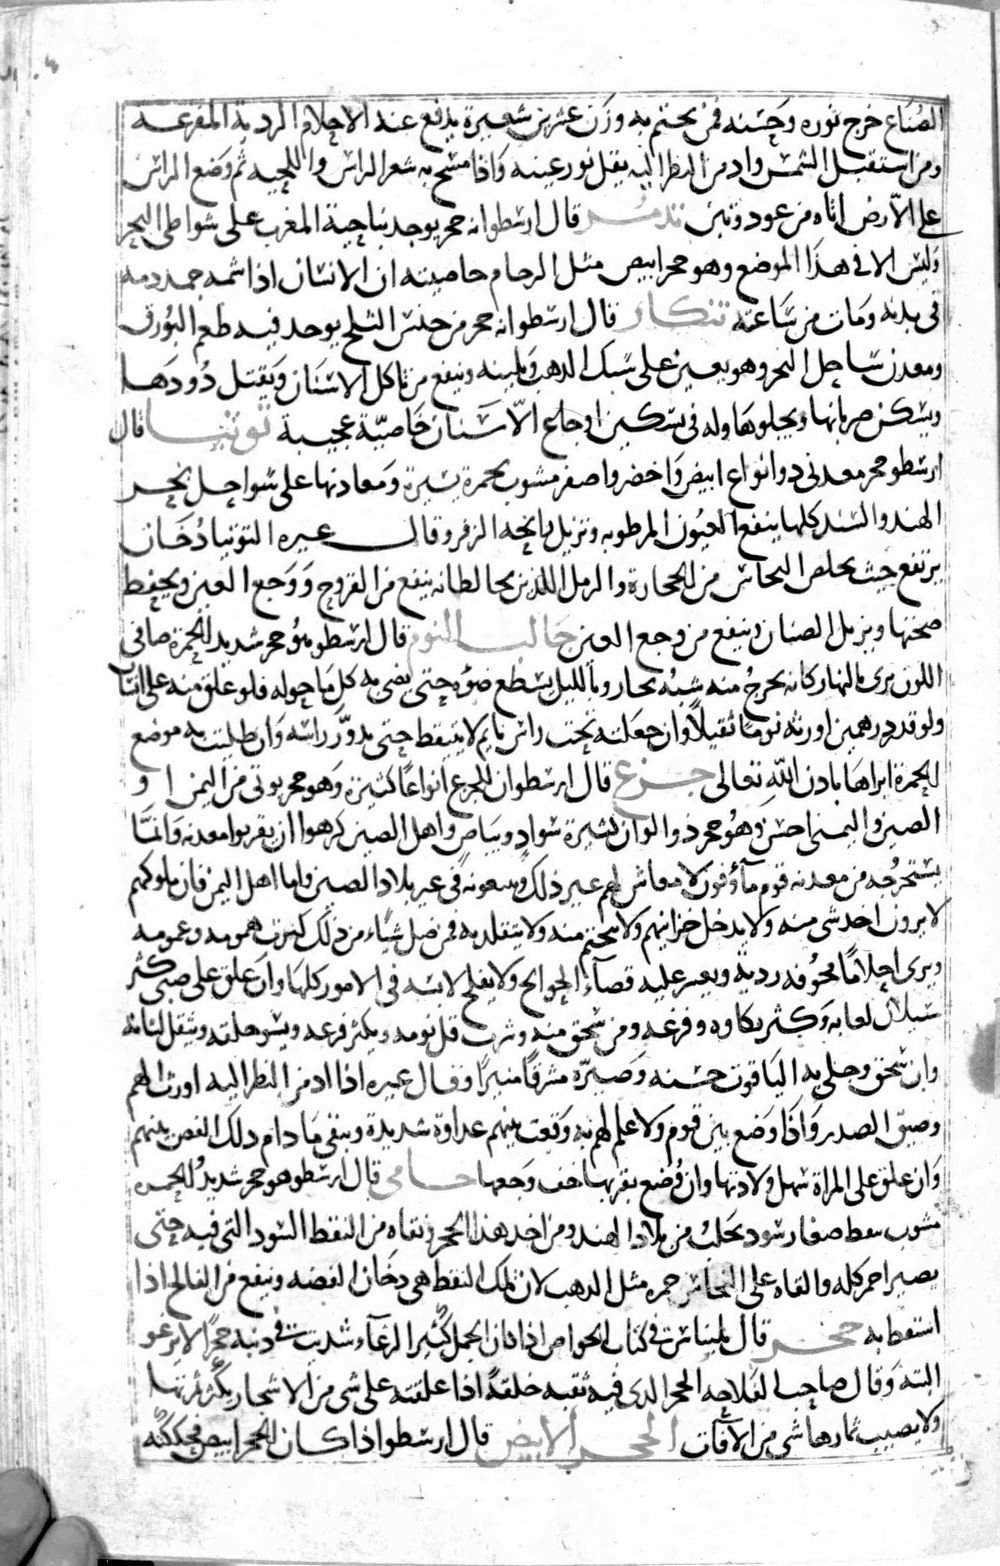 الصناع خرج نوره وحسنه فمن تختم به وزن عشرين شعيرة يدفع عند الاحلام الردية المفزعة
ومن استقبل الشمس وادمن النظر اليه يقل نور عينه وَاذا مسح به شعر الراس واللحيه ثم وَضع الراس
على الاَرض اتاه من عود وتبن تدمُر قال ارسطو انه حجر يوجد بناحية المغرب على شواطى البحر
وَليس الا فى هذَا الموضع وهو حجر ابيض مثل الرخام خاصيته ان الانسان اذا شمه جمد دمه
فى بدنه ومَات من سَاعته تنكار قال ارسطو انه حجر من جنس الملح يوجد فيه طعم البُورق
ومعدن ساحل البحر وهو يعين على سبك الذهب وَيلينه وينفع من تاكل الاسنَان وَيقتل دُودهَا
ويسكن ضربانها ويجلوهَا وله فى تسكين اوجاع الاَسنان خَاصيّة عجيبة توتيا قال
ارسطو حجر معدنى ذو انواع ابيض وَاخضر واصفر مشوب بحمرة يسيرة وَمعادنها على سواحل بحر
الهند والسند كلها ينفع العيُون المرطوبه وتزيل رايحه الزفر وقال غيره التوتيا دُخَان
يرتفع حيث يخلص النحاس من الحجارة والرمل اللذين يخالطانه ينفع من القروح وَوَجع العين ويحفظ
صحتها ويزيل الصنان وينفع من وجع العين جالب النوم قال ارسطو هُو حجر شديد الحمرة صافى
اللون يرى بالنهار كانه يخرجُ منه شبْه بخار وبالليل يسطع ضوْه حتى يضى به كل مَا حوله فلو علق منه على انسان
ولو قدر درهمين اورثه نومًا ثقيلاً وان جعلته تحت راس نايم لا يتيقظ حتى يدوّر راسه وَان طليت به موضع
الحمرة ابراهَا باذن اللهِ تعالى جزع قال ارسطو ان للجزع انواعًا كثيرة وَهو حجر يوتى من اليمن ا و
الصين واليمنى احسن وهُو حجر ذو الوان كثيرة سَوادٍ وبيَاض وَاهل الصين كرهوا ان يقربوا معدنه وَانمَّا
يستخرجُه من معدنه قوم مآؤفون لا معاش لهم غير ذلك ويبيعونه فى غير بلاد الصين واما اهل اليمن فان ملوكهم
لا يرون اخذ شى منه ولا يدخل خزانيهم ولا يتختم منه ولا يتقلد به فمن فعل شيًاء من ذلك كثرت همومه وغمومه
ويرى احلامًا مخُوفه ردية ويعسر عليه قضآء الحوايج ولا يفلح لابسه فى الامور كلهَا وان علق على صبى كثر
سيلان لعابه وَكثر بكاوه وفزعه ومن سحق منه وشرب قل نومه ويكثر فزعه ويسو خلقه ويثقل لسانه
وان سُحق وجلى به اليَاقوت حسنه وَصيرّه مشرقًا منيرًا وقال غيره اذا ادمن النظر اليه اورث الهم
وضيق الصدر وَاذَا وَضع بين قوم ولا علم لهم به وَقعت بينهم عداوة شديدة ويبقى مَا دام ذلك الفص بينهم
وَان علق على المراة سهل ولادتها وَان وُضع بقربها خف وَجعها حامى قال ارسطو هو حجر شديدُ الحمره
مشوب بنقط صغار سُود يجلبُ من بلاد الهند ومن اخذ هذا الحجر ونقاه من النقط السُود التى فيه حتى
يصير احمر كله والقاه على النحاس حمره مثل الذهب لان تلك النقط هى دخَان الفضه وينفع من الفالج اذا
استعط به حجر قال بليناس فى كتاب الخواص اذا كان الجمل كثير الرغآء شديت فى ذنبه حجرًا لا يرغو
البته وَقال صاحب الفلاحه الحجر الذى فيه ثقبه خلقة اذا علقته على شى من الاشجار يكثر ثمرتها
ولا يصيب ثمارها شى من الآفات الحجر الابيض قال ارسطو اذا كان الحجر ابيض فحككته